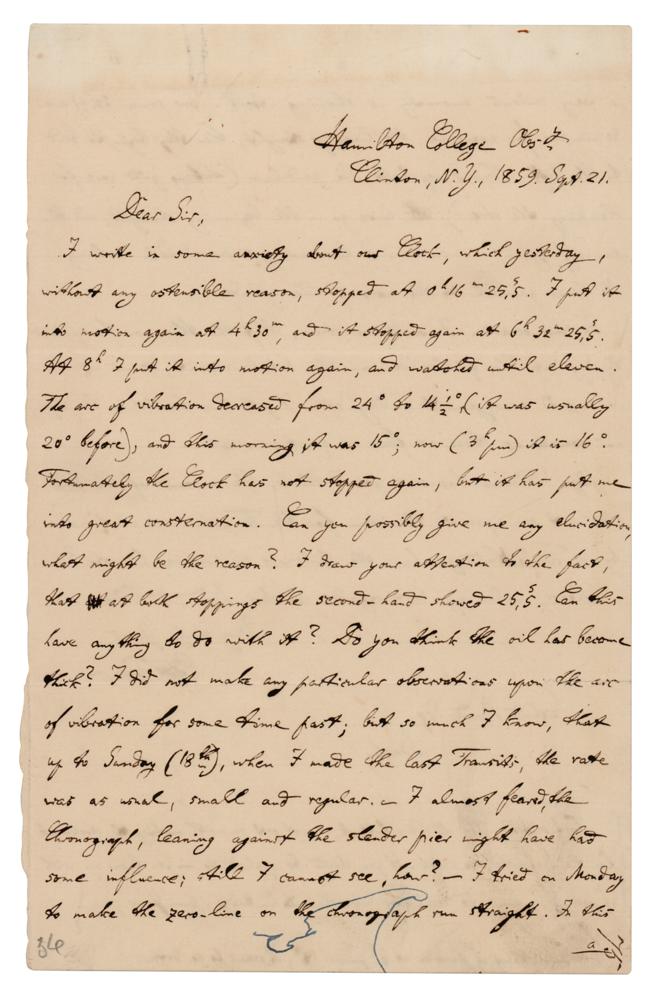 Hamilton College Obs'y
Clinton, N.Y., 1859. Spt. 21.
Dear Sir,
I write in some anxiety about our Clock, which yesterday,
without any ostensible reason, stopped at 0h 16m 25,s5. I put it
into motion again at 4h 30m, and it stopped again at 6h 32m 25,s5.
At 8h I put it into motion again, and watched until eleven.
The arc of vibration decreased from 24° to 14½° (it was usually
20° before), and this morning it was 15°; now (3h pm) it is 16°.
Fortunately the Clock has not stopped again, but it has put me
into great consternation. Can you possibly give me any elucidation,
what might be the reason? I draw your attention to the fact,
that at both stoppings the second-hand showed 25,s5. Can this
have anything to do with it? Do you think the oil has become
thick? I did not make any particular observations upon the arc
of vibration for some time past; but so much I know, that
up to Sunday (18th), when I made the last Transits, the rate
was as usual, small and regular. — I almost feared, the
Chronograph, leaning against the slender pier might have had
some influence; still I cannot see, how? — I tried on Monday
to make the zero-line on the chronograph run straight. In this
36